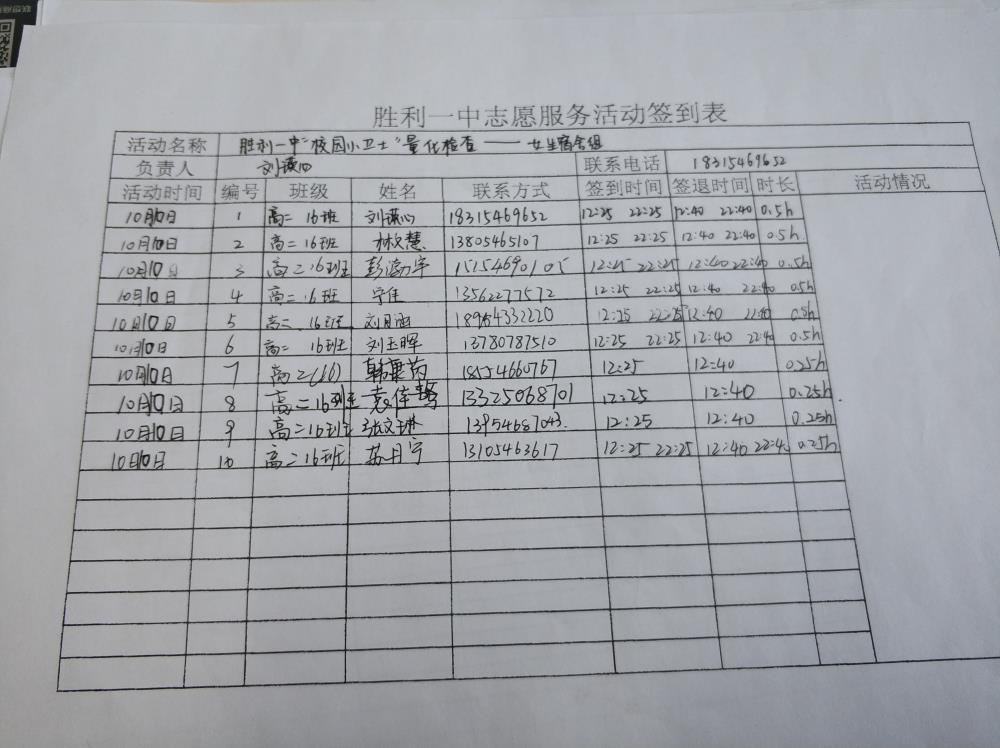 胜利一中志愿服务活动签到表
活动名称 胜利一中"校园小卫士"量化检查——女生宿舍组
负责人 刘 联系电话 18315469652
活动时间 编号 班级 姓名 联系方式 签到时间 签退时间 时长 活动情况
10月10日 1 高二 16班 刘 18315469652 12:25 22:25 12:40 22:40 0.5h
10月10日 2 高二 16班 林文慧 13805465107 12:25 22:25 12:40 22:40 0.5h
10月10日 3 高二16班 彭 宇 15154690105 12:25 22:25 12:40 22:40 0.5h
10月10日 4 高二 16班 13562277572 12:25 22:25 12:40 22:40 0.5h
10月10日 5 高二 16班 刘月 18954332220 12:25 22:25 12:40 22:40 0.5h
10月10日 6 高二 16班 刘玉晖 13780787510 12:25 22:25 12:40 22:40 0.5h
10月10日 7 高二(16) 韩 18554660767 12:25 12:40 0.25h
10月10日 8 高二16班 袁佳 13325068701 12:25 12:40 0.25h
10月10日 9 高二16班 张文琳 13954687043. 12:25 12:40 0.25h
10月10日 10 高二16班 苏月宁 13105463617 12:25 22:25 12:40 22:40 0.25h